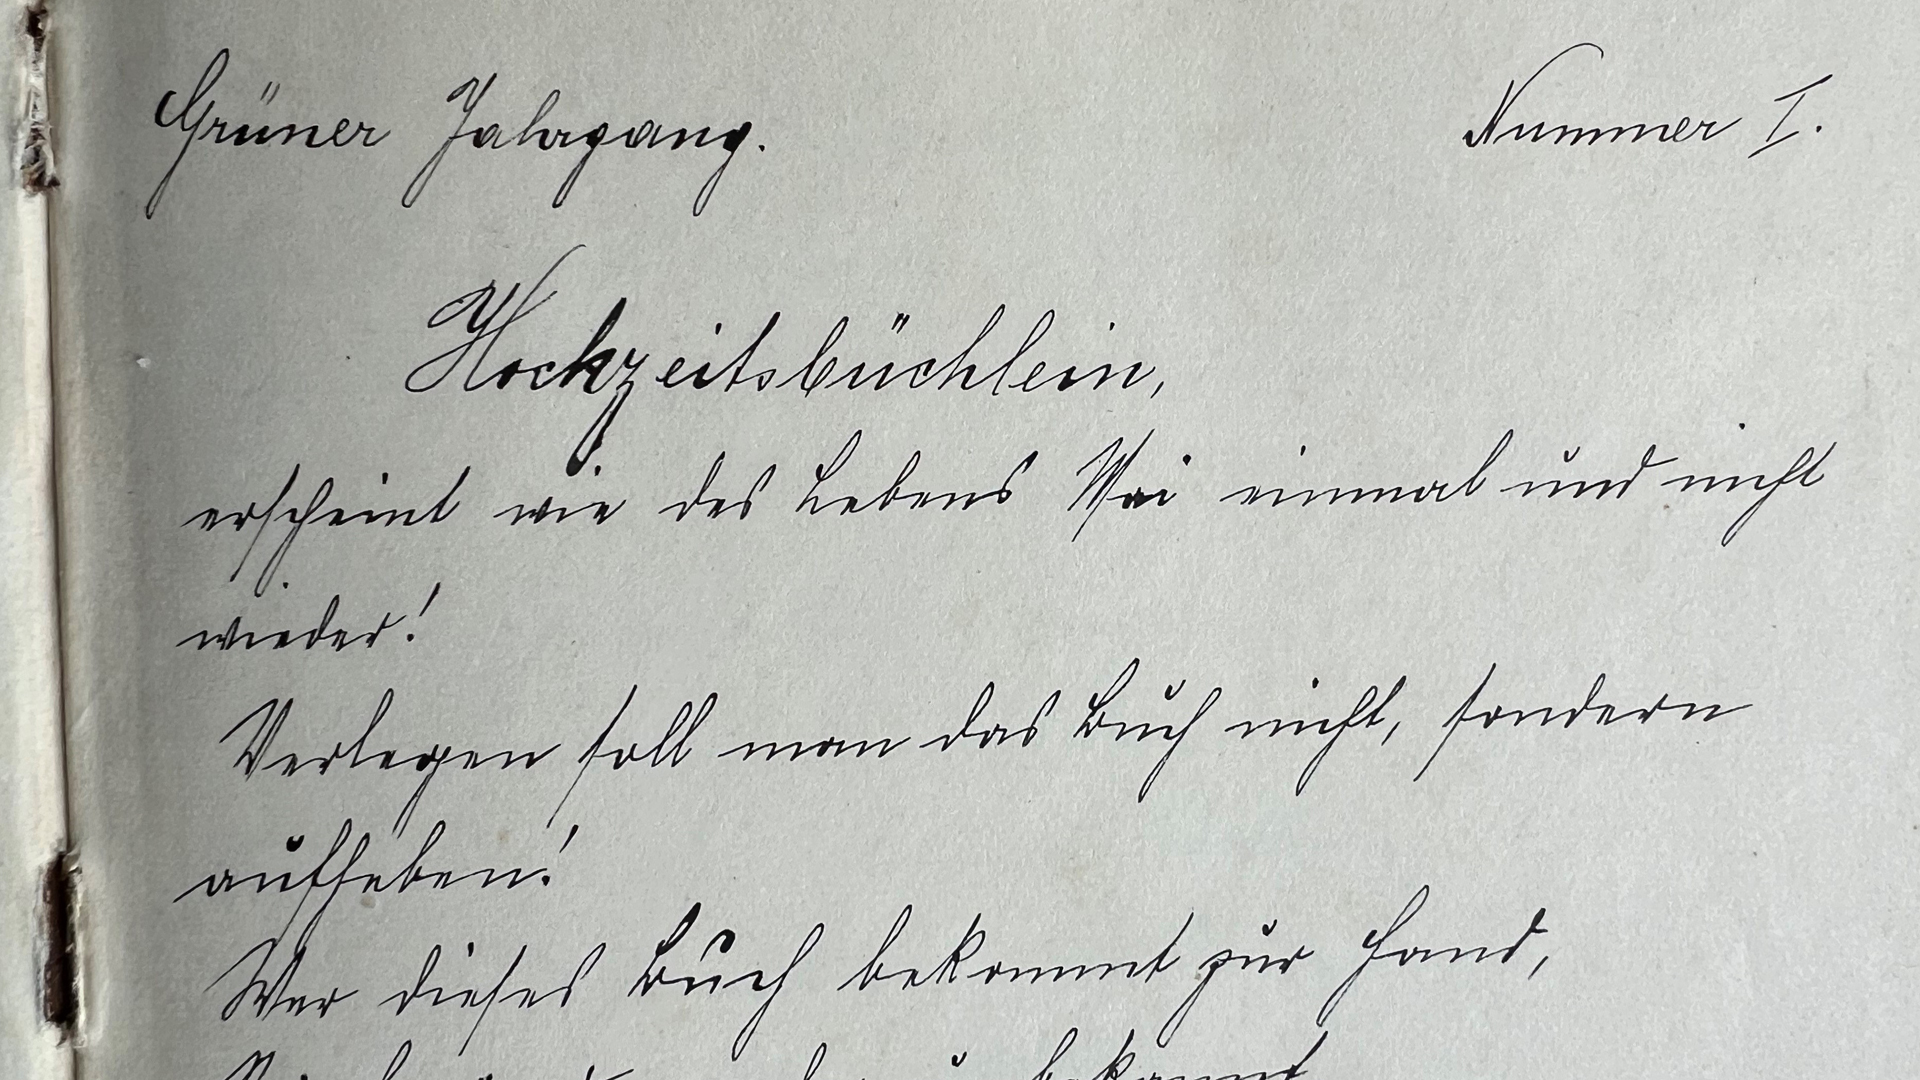 Grüner Jahrgang. Nummer I.
Hochzeitsbüchlein,
erscheint wie des Lebens Mai einmal und nicht
wieder!
Verlegen soll man das Buch nicht, sondern
aufheben!
Wer dieses Buch bekommt zur Hand,
bekannt